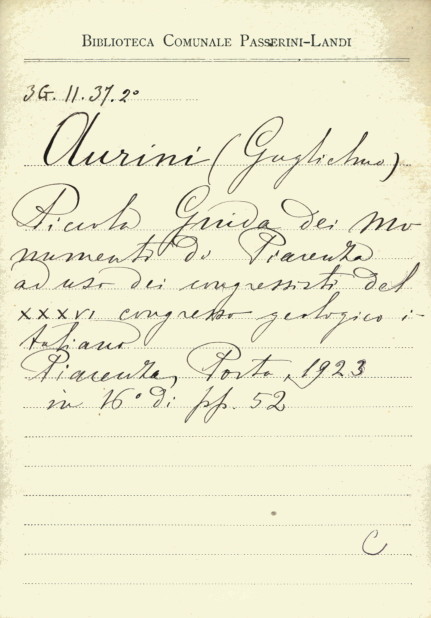 BIBLIOTECA COMUNALE PASSERINI-LANDI
3G. II. 37. 2°
Aurini (Guglielmo)
Piccola Guida dei mo-
numenti di Piacenza
ad uso dei congressisti del
XXXVI congresso geologico i-
taliano
Piacenza, Porta, 1923
in 16° di pp. 52
C